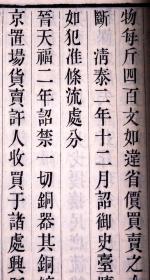 物每斤四百文如違省價買賣之人
斷清泰二年十二月詔御史臺曉
如犯准條流處分
晉天福二年詔禁一切銅器其銅鏡
京置場貨賣許人收買于諸處興販